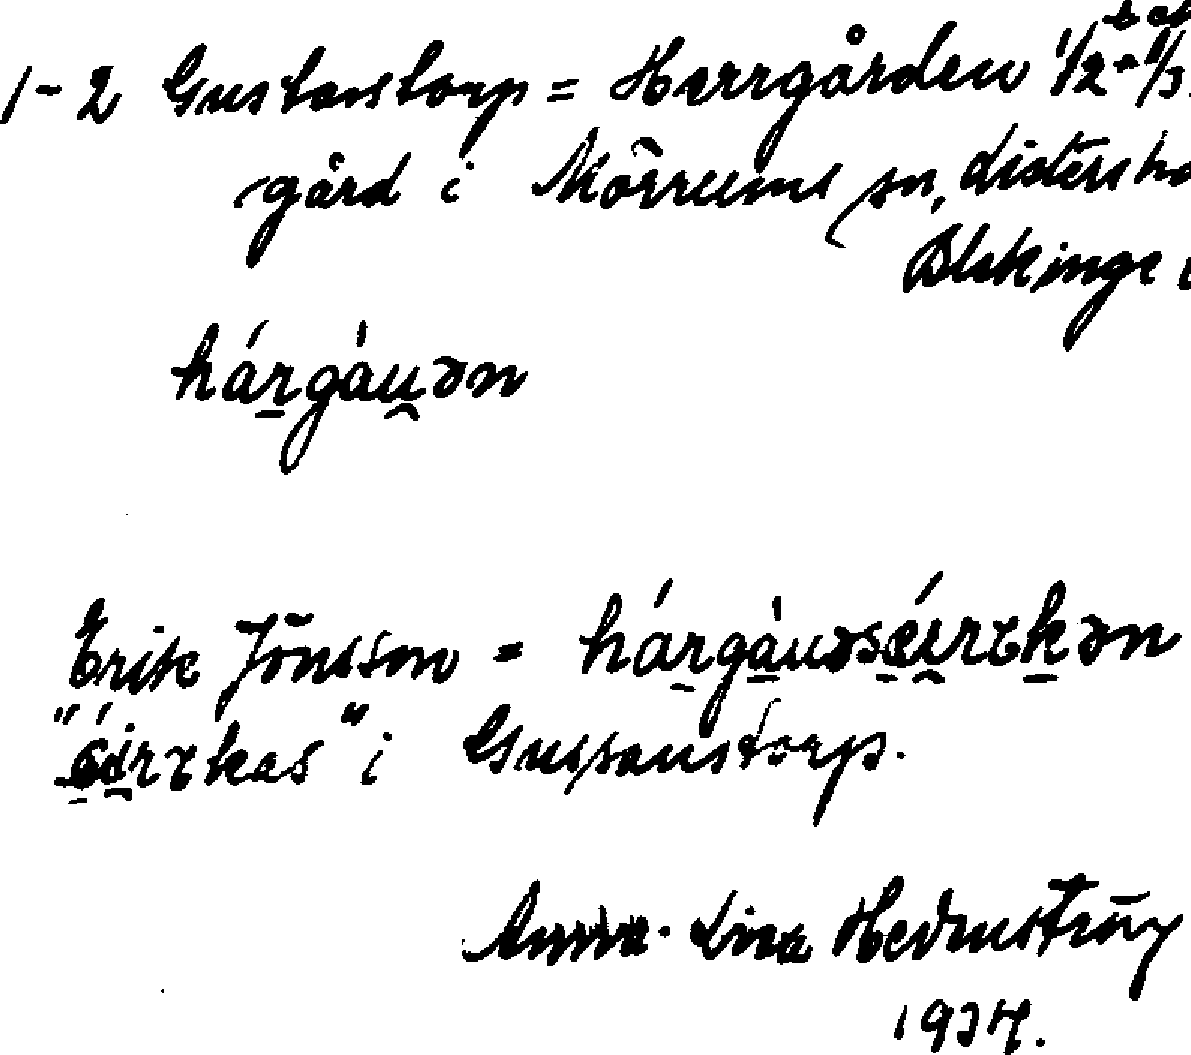 1-2 Gustavstorp = Herrgården 1/2 - 1/3
gård i Mörrums sn, Listers
Blekinge
hárgàu̯ən
Erik Jönsson = hárgàuəséirɪkən
"éirɪkas" i Gussanstorp.
Anna-Lisa
1934.